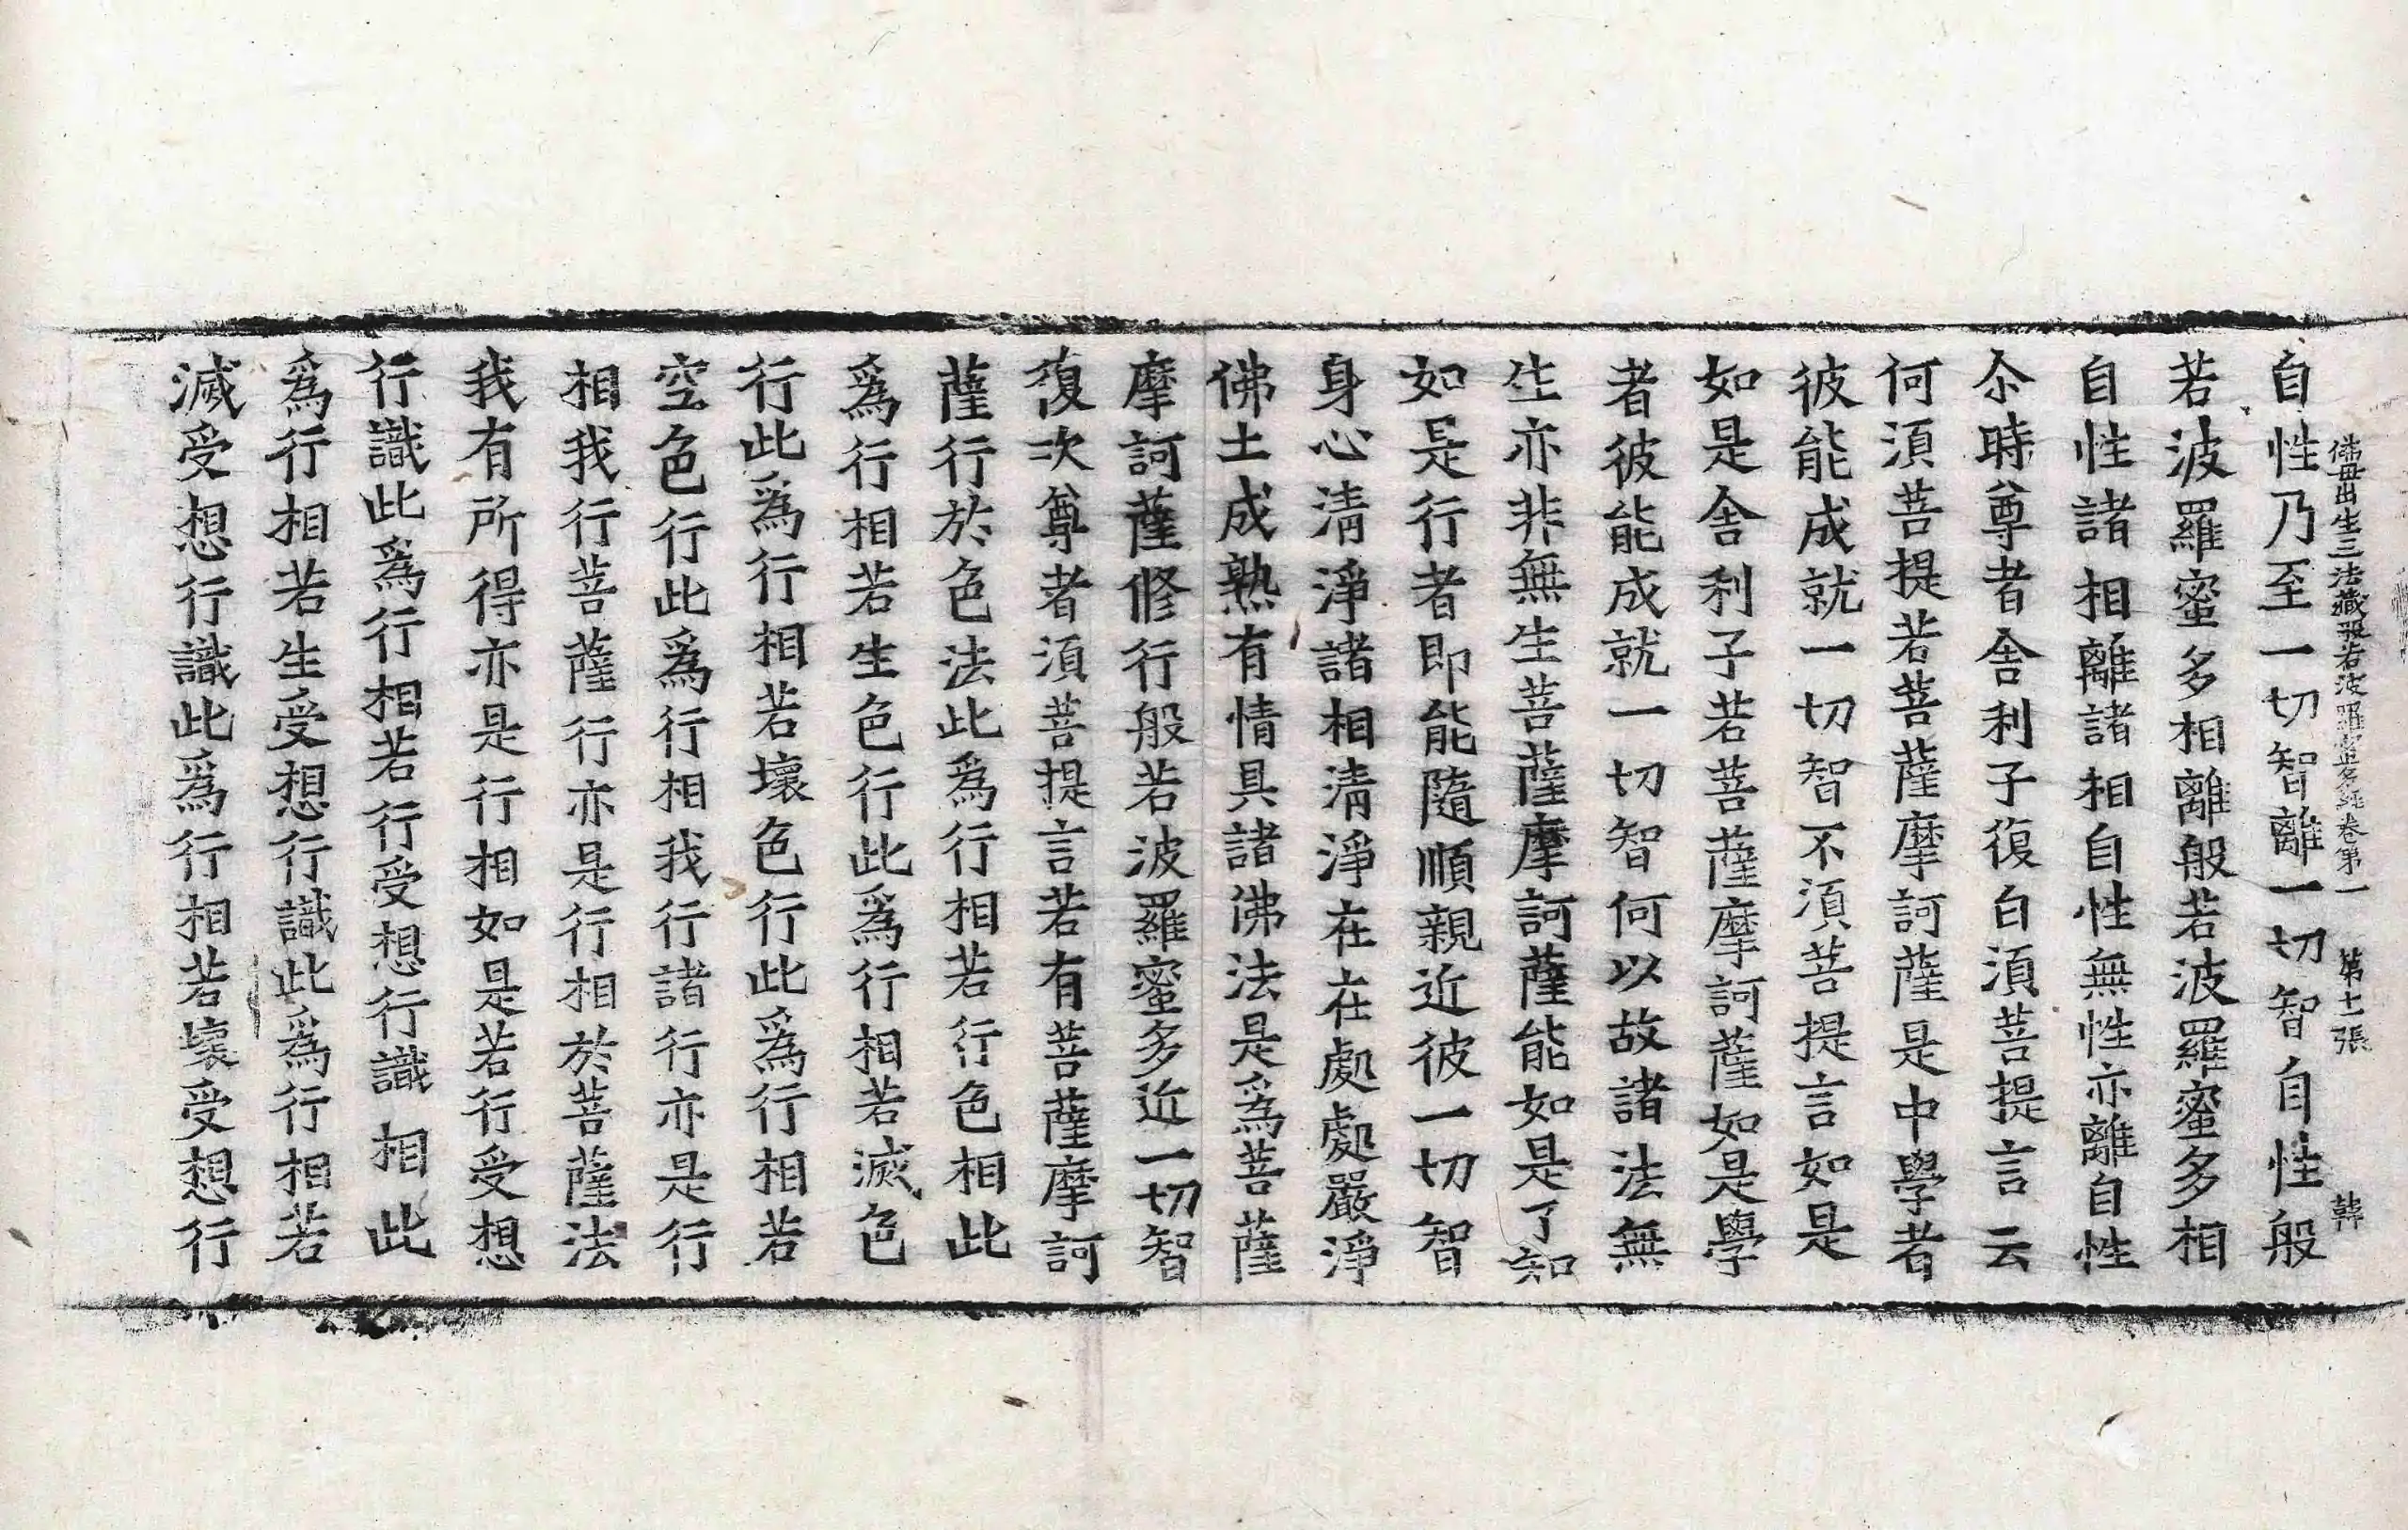 佛母出生三法藏般若波羅蜜多經卷第一 第十一張 韓
自性乃至一切智離一切智自性般
若波羅蜜多相離般若波羅蜜多相
自性諸相離諸相自性無性亦離自性
尒時尊者舍利子復白須菩提言云
何須菩提若菩薩摩訶薩是中學者
彼能成就一切智不須菩提言如是
如是舍利子若菩薩摩訶薩如是學
者彼能成就一切智何以故諸法無
生亦非無生菩薩摩訶薩能如是了知
如是行者即能隨順親近彼一切智
身心清淨諸相清淨在在處處嚴淨
佛土成熟有情具諸佛法是爲菩薩
摩訶薩修行般若波羅蜜多近一切智
復次尊者須菩提言若有菩薩摩訶
薩行於色法此爲行相若行色相此
爲行相若生色行此爲行相若滅色
行此爲行相若壞色行此爲行相若
空色行此爲行相我行諸行亦是行
相我行菩薩行亦是行相於菩薩法
我有所得亦是行相如是若行受想
行識此爲行相若行受想行識相此
爲行相若生受想行識此爲行相若
滅受想行識此爲行相若壞受想行